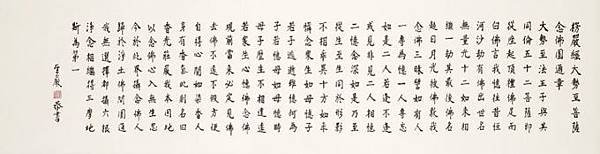 楞嚴經大勢至菩薩
念佛圓通章
大勢至法王子與其
同倫五十二菩薩即
從座起頂禮佛足而
白佛言我憶往昔恒
河沙劫有佛出世名
無量光十二如來相
繼一劫其最後佛名
超日月光彼佛教我
念佛三昧譬如有人
一專為憶一人專忘
如是二人若逢不逢
或見非見二人相憶
二憶念深如是乃至
從生至生同於形影
不相乖異十方如來
憐念眾生如母憶子
若子逃逝雖憶何為
子若憶母如母憶時
母子歷生不相違遠
若眾生心憶佛念佛
現前當來必定見佛
去佛不遠不假方便
自得心開如染香人
身有香氣此則名曰
香光莊嚴我本因地
以念佛心入無生忍
今於此界攝念佛人
歸於淨土佛問圓通
我無選擇都攝六根
淨念相繼得三摩地
斯為第一
聖嚴 敬書